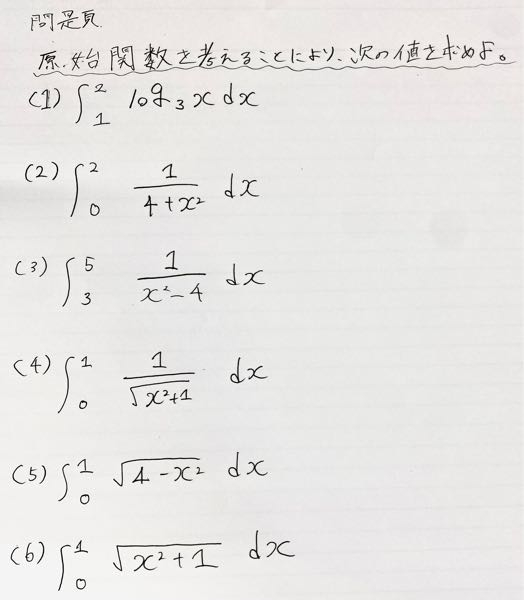 問題
原始関数を考えることにより、次の値を求めよ。
(1) ∫₁² log₃ x dx
(2) ∫₀² 1/(4+x²) dx
(3) ∫₃⁵ 1/(x²-4) dx
(4) ∫₀¹ 1/√(x²+1) dx
(5) ∫₀¹ √(4-x²) dx
(6) ∫₀¹ √(x²+1) dx